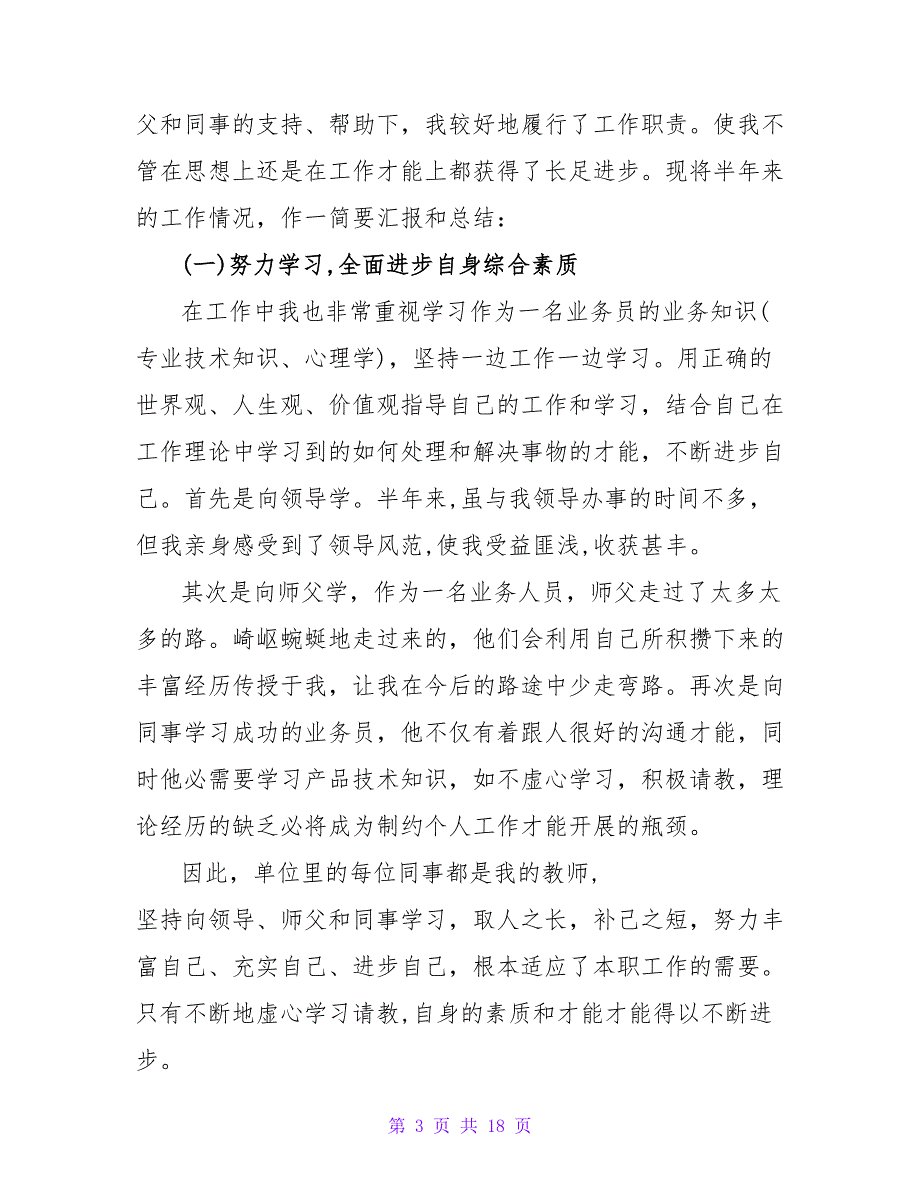 父和同事的支持、帮助下，我较好地履行了工作职责。使我不
管在思想上还是在工作才能上都获得了长足进步。现将半年来
的工作情况，作一简要汇报和总结：
(一)努力学习,全面进步自身综合素质
在工作中我也非常重视学习作为一名业务员的业务知识(
专业技术知识、心理学)，坚持一边工作一边学习。用正确的
世界观、人生观、价值观指导自己的工作和学习，结合自己在
工作理论中学习到的如何处理和解决事物的才能，不断进步自
己。首先是向领导学。半年来,虽与我领导办事的时间不多，
但我亲身感受到了领导风范,使我受益匪浅,收获甚丰。
其次是向师父学，作为一名业务人员，师父走过了太多太
多的路。崎岖蜿蜒地走过来的，他们会利用自己所积攒下来的
丰富经历传授于我，让我在今后的路途中少走弯路。再次是向
同事学习成功的业务员，他不仅有着跟人很好的沟通才能，同
时他必需要学习产品技术知识，如不虚心学习，积极请教，理
论经历的缺乏必将成为制约个人工作才能开展的瓶颈。
因此，单位里的每位同事都是我的教师,
坚持向领导、师父和同事学习，取人之长，补己之短，努力丰
富自己、充实自己、进步自己，根本适应了本职工作的需要。
只有不断地虚心学习请教,自身的素质和才能才能得以不断进
步。
第 3 页 共 18 页